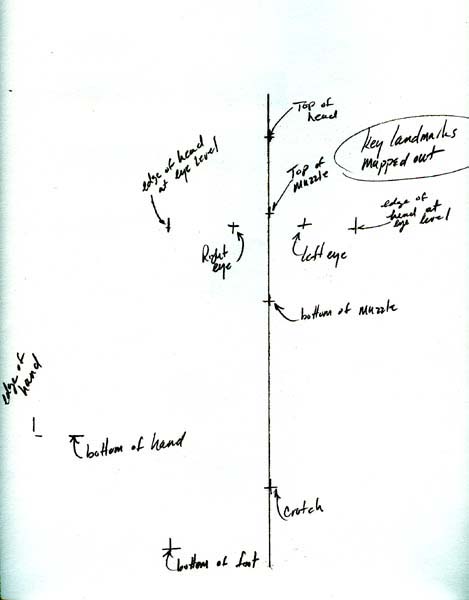 Top of
head
key landmarks
mapped out
edge of head
at eye level
Top of
muzzle
edge of
head at
eye level
Right
eye
left eye
bottom of muzzle
edge of
hand
bottom of hand
crotch
bottom of foot